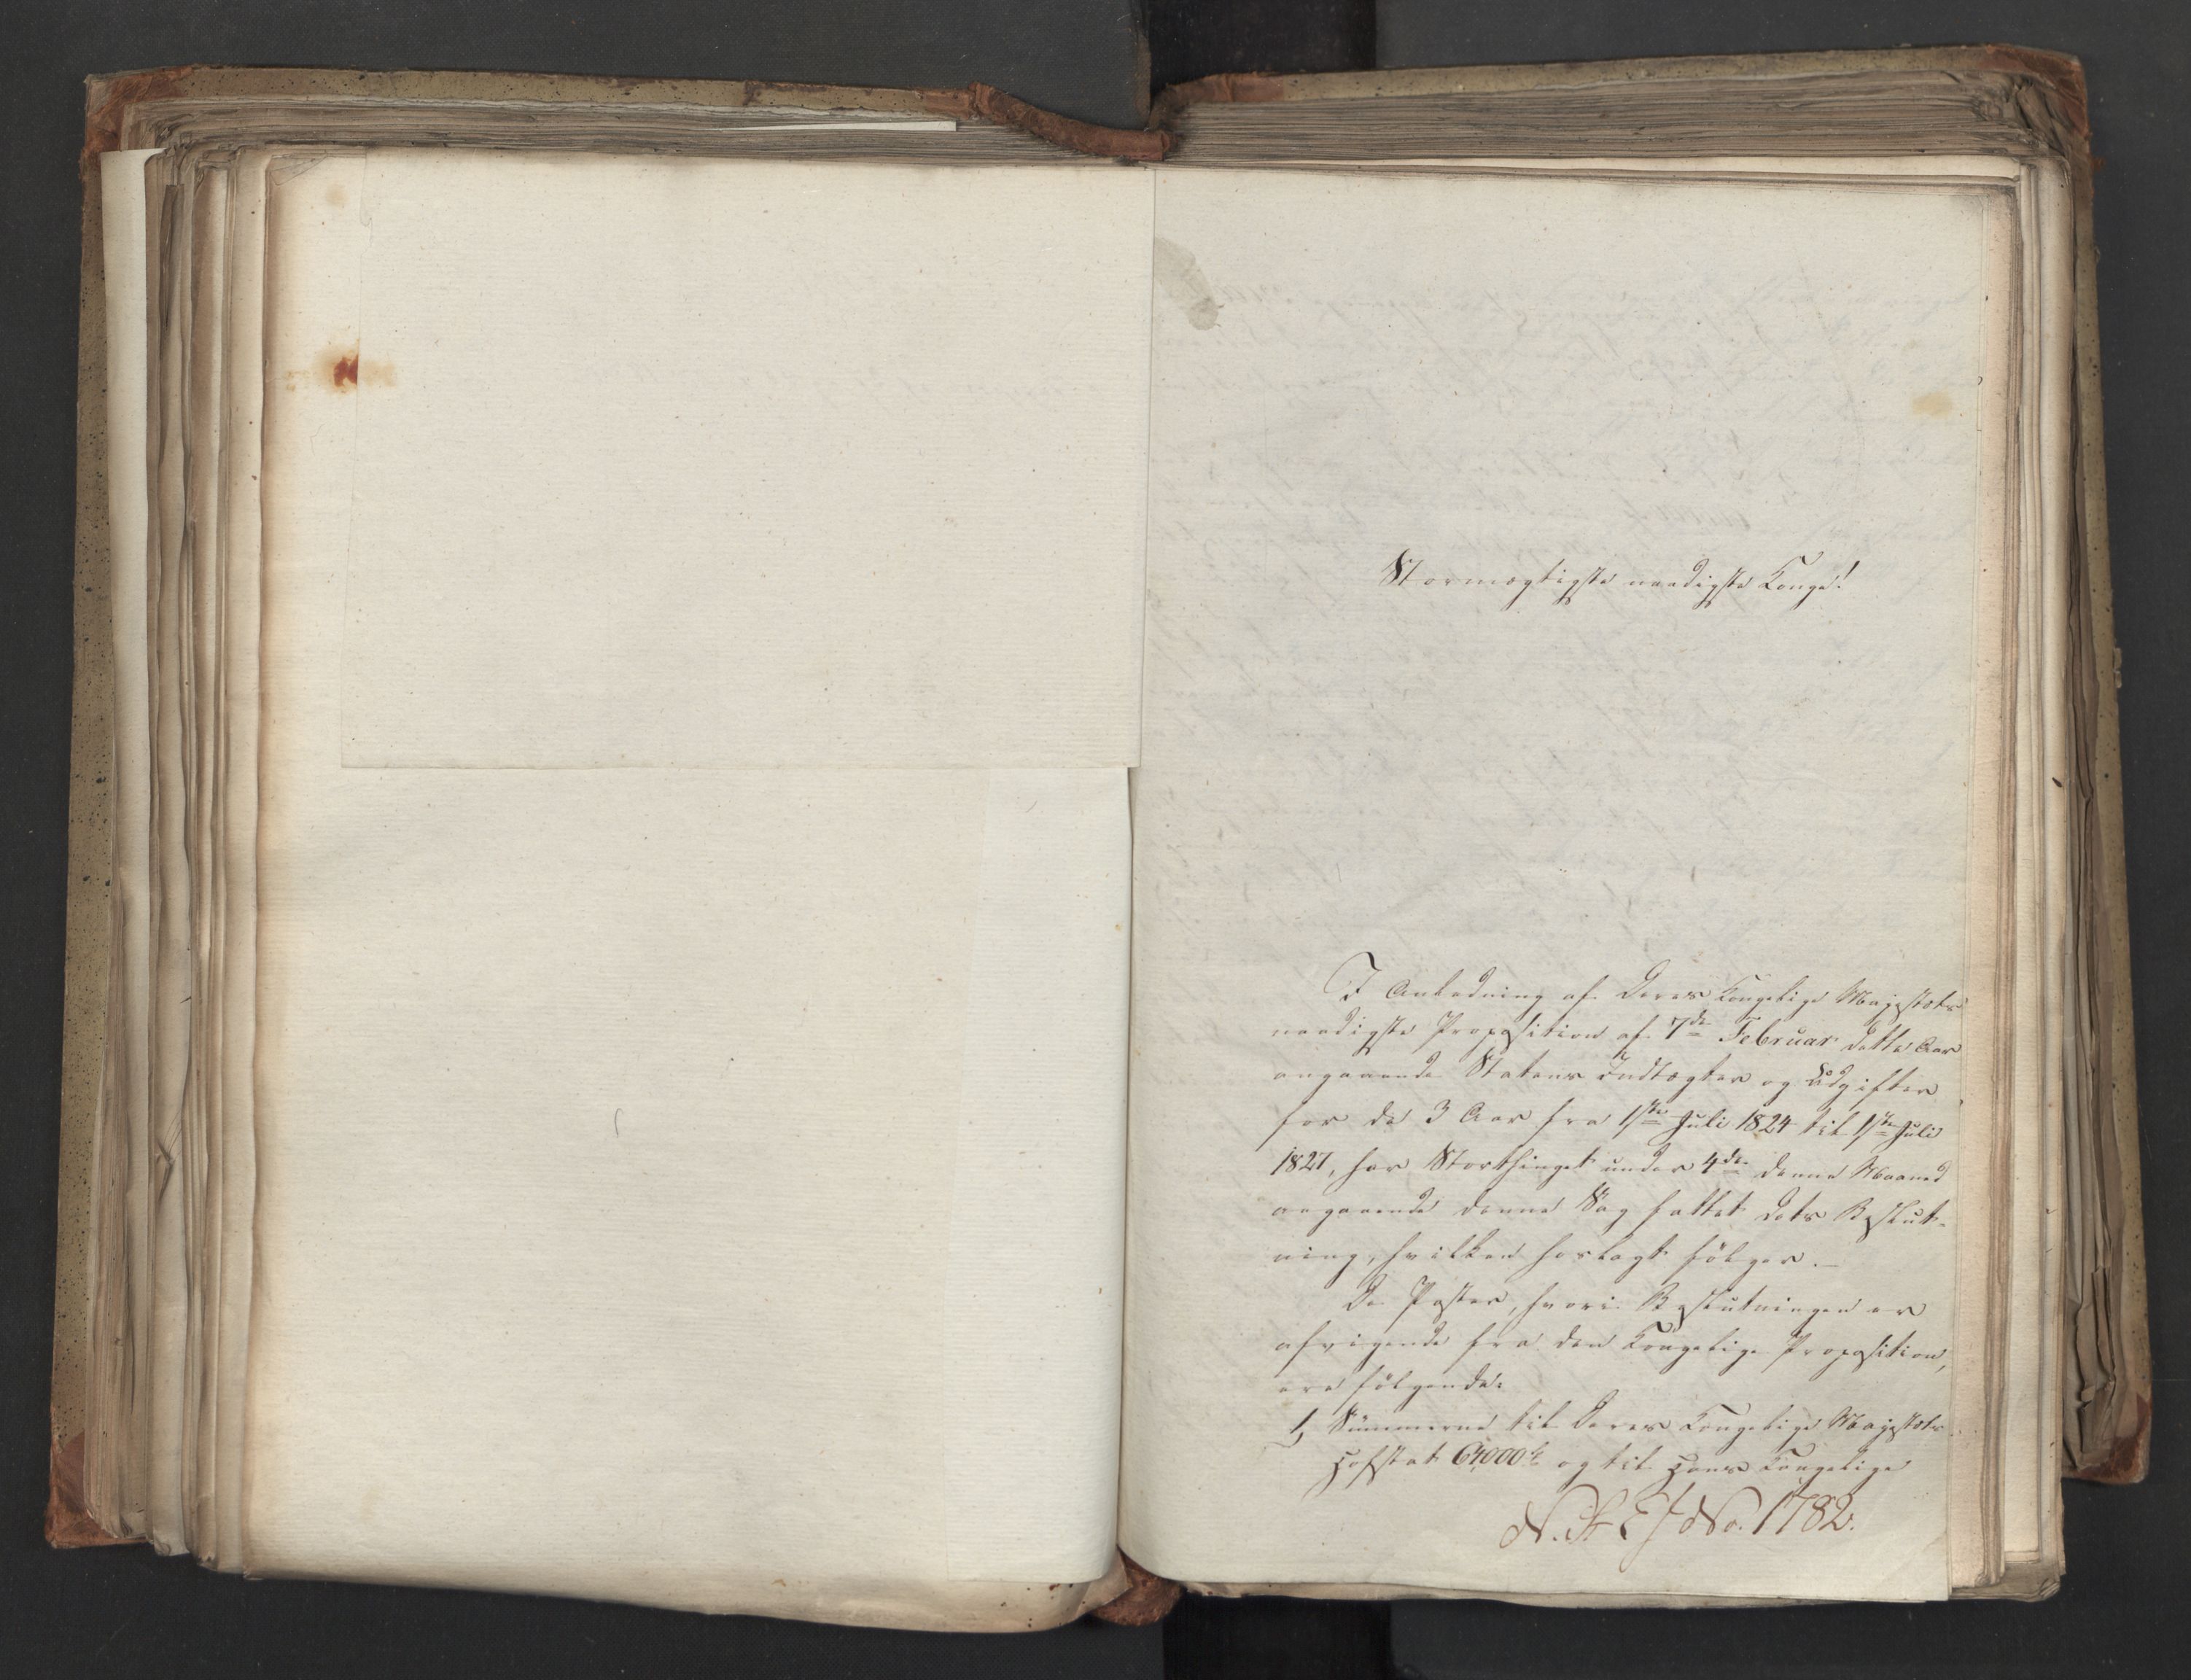 Stormægtigste naadigste Konge!
I Anledning af Deres Kongelige Majestæts
naadigste Proposition af 7de Februar dette Aar
angaaende Statens Indtægter og Udgifter
for de 3 Aar fra 1ste Juli 1824 til 1ste Juli
1827, har Storthinget under 4de denne Maaned
angaaende denne Sag fattet dets Beslut-
ning, hvilken hoslagt følger. —
De Poster, hvori Beslutningen er
afvigende fra den Kongelige Proposition,
ere følgende:
1, Summerne til Deres Kongelige Majestæts
Hofstat 64000 og til Hans Kongelige
No. 1782.